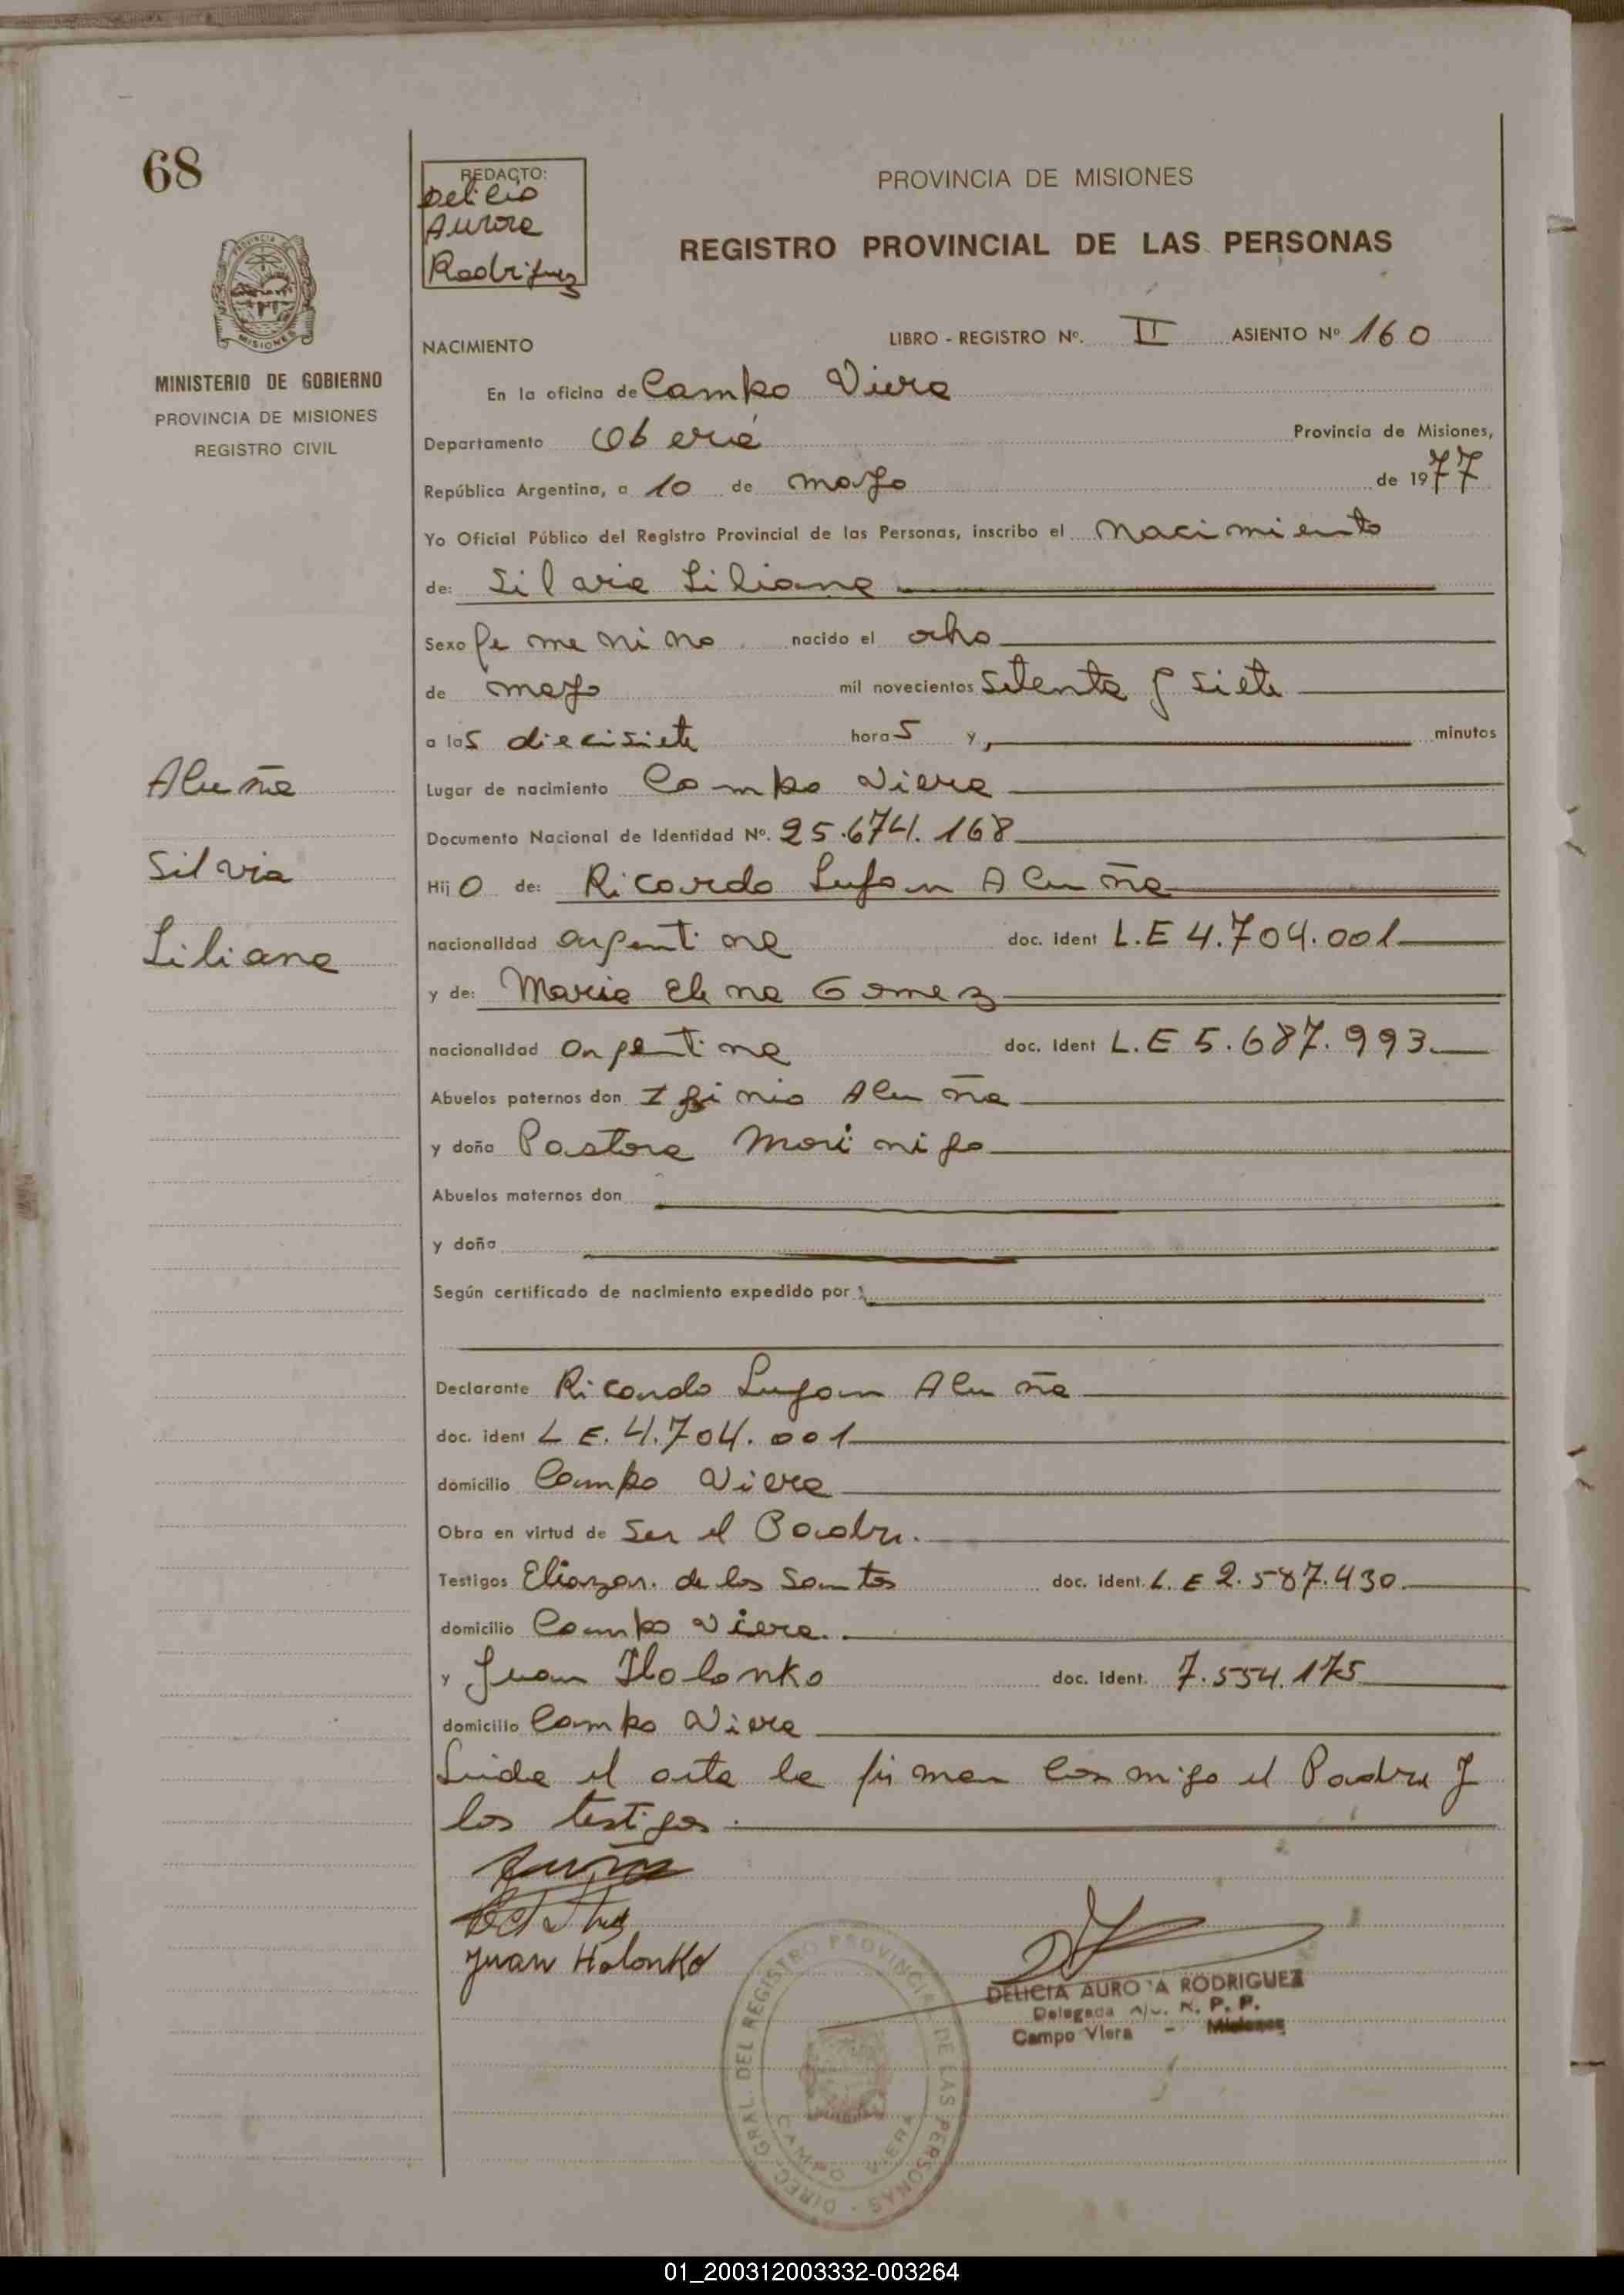 68
REDACTO:
Delicia
Aurora
Rodriguez
PROVINCIA DE MISIONES
REGISTRO PROVINCIAL DE LAS PERSONAS
MISIONES
MINISTERIO DE GOBIERNO
PROVINCIA DE MISIONES
REGISTRO CIVIL
NACIMIENTO
LIBRO - REGISTRO Nº. II ASIENTO Nº 160
En la oficina de Campo Viera
Departamento Oberá Provincia de Misiones,
República Argentina, a 10 de mayo de 1977
Yo Oficial Público del Registro Provincial de las Personas, inscribo el Nacimiento
de: Silvia Liliana
Sexo femenino nacido el ocho
de mayo mil novecientos setenta y siete
a las diecisiete horas y minutos
Lugar de nacimiento Campo Viera
Documento Nacional de Identidad Nº. 25.674.168
Acuña
Silvia
Liliana
Hijo de: Ricardo Lujan Acuña
nacionalidad argentina doc. ident L.E 4.704.001
y de: Maria Elena Gomez
nacionalidad argentina doc. ident L.E 5.687.993
Abuelos paternos don Iginio Acuña
y doña Pastora Morinigo
Abuelos maternos don
y doña
Según certificado de nacimiento expedido por
Declarante Ricardo Lujan Acuña
doc. ident L E. 4.704.001
domicilio Campo Viera
Obra en virtud de ser el Padre.
Testigos Eliazar de los Santos doc. ident. L. E 2.587.430
domicilio Campo Viera.
y Juan Holonko doc. ident. 7.554.175
domicilio Campo Viera
Leida el acta la firman conmigo el Padre y
los testigos.
Acuña
Juan Holonko
DELICIA AURORA RODRIGUEZ
Delegada R. P. P.
Campo Viera - Misiones
DIREC. GRAL. DEL REGISTRO PROVINCIAL DE LAS PERSONAS
CAMPO VIERA
01_200312003332-003264